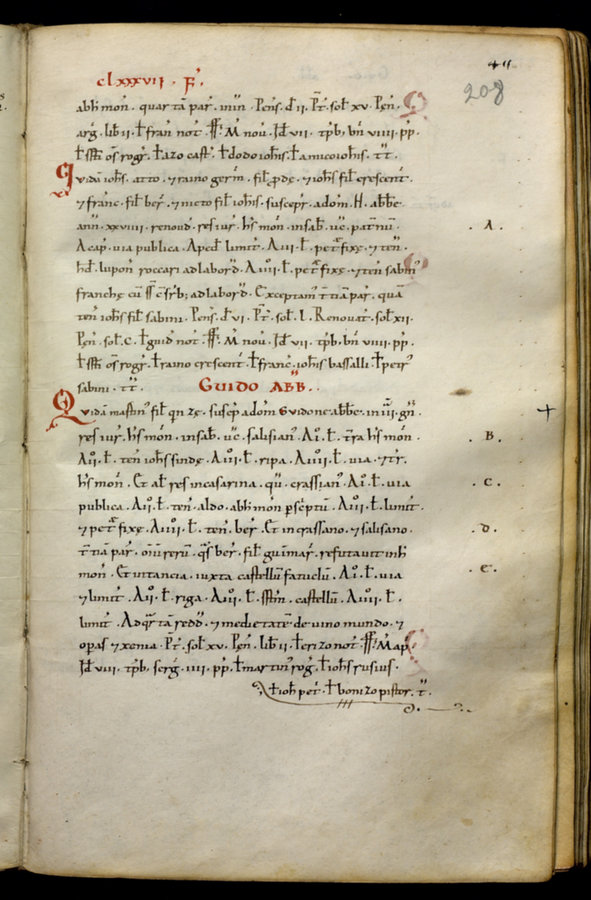 411
208
clxxxvii · F'.
abb̄ mon̄. quartā par̄. mīn. Pens̄. d̄ ii. Pt̄. sol̄ xv. Pen̄.
arḡ. lib̄ ii. ł fran̄ not̄. M̄ nou̅. Id̄ vii. tp̄b, bn̄ viiii. pp̄.
ł stefī os̄ roḡ. ł azo cast̄. ł dodo ioh̄is. ł amico ioh̄is. t̄t.
Quidā ioh̄s. atto. ⁊ raino germ̄. fil̄ p̄dę. ⁊ ioh̄s fil̄ crescent̄.
⁊ franc̄. fil̄ ber̄. ⁊ nicto fil̄ ioh̄is. suscepr̄. a dom̄. H. abb̄e
ann̄. xxviiii. renoud̄. res iur̄. h̄s mon̄. in sab̄. uc̄. pat nū.
A cap̄. uia publica. A ped̄ limit̄. A iii. l̄. pet̄ fixę. ⁊ ten̄.
hd̄. lupon̄ roccari ad labor̄d. A iiii. l̄. pet̄ fixę. ⁊ ten̄ sabin̄
franche cū ad labor̄d. Exceptam̄ t̄tiā par̄. quā
ten̄ ioh̄s fil̄ sabini. Pens̄. d̄ vi. Pt̄. sol̄. l. Renouat̄. sol̄ xii.
Pen̄. sol̄. c. ł guid̄ not̄. M̄ nou̅. Id̄ vii. tp̄b, bn̄ viiii. pp̄.
ł stefī os̄ roḡ. ł raino crescent̄. ł franc̄. ioh̄is bassalli. ł petr̄
sabini. t̄t. GUIDO ABB̄.
Quidā martin̄ fil̄ suscep̄ a dom̄ Guidone abb̄e. in iii. gn̄.
res iur̄. h̄s mon̄. in sab̄. uc̄. salisian̄. A i. l̄. t̄ra h̄s mon̄. · B ·
A ii. l̄. ten̄ ioh̄s sindę. A iii. l̄. ripa. A iiii. l̄. uia. ⁊ t̄r.
h̄s mon̄. Et al̄ res in casarina. qū. crassian̄. A i. l̄. uia · C ·
publica. A ii. l̄. ten̄. aldo. abh̄ mon̄ p̄ scriptū. A iii. l̄. limit̄
⁊ pet̄ fixę. A iiii. l̄. ten̄. ber̄. Et in crassano. ⁊ salisano. · D ·
t̄tiā par̄. om̄iū rerū. qs̄ ber̄. fil̄ guimar̄. refutauit in h̄
mon̄. Et in tancia. iuxta castellū fatuclū. A i. l̄. uia · E ·
⁊ limit̄. A ii. l̄. riga. A iii. l̄. castellū. A iiii. l̄.
limit̄. Ad qr̄ta redd̄. ⁊ medietatē de uino mundo. ⁊
opas ⁊ xenia. Pt̄. sol̄ xv. Pen̄. lib̄ ii. ł erizo not̄. M̄ ap̄.
Id̄ viii. tp̄b, serḡ. iiii. pp̄. ł martin̄ roḡ. ł ioh̄s rusius.
ł ioh̄ pet̄. ł bonizo pistor. t̄.
· A ·